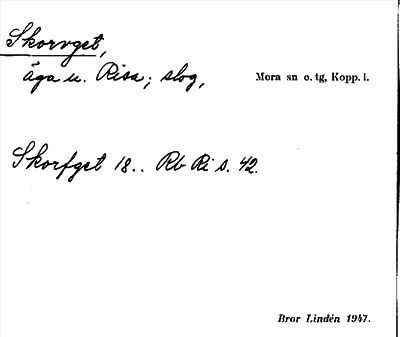 Skorvget,
äga u. Risa; slog,
Mora sn o. tg, Kopp. l.
Skorfget 18.. Rb Ri s. 42.
Bror Lindén 1947.